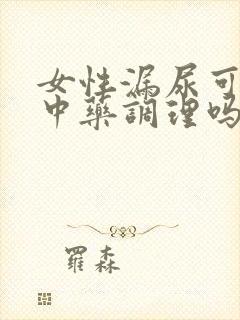 女性漏尿可
中藥調理嗎
羅森